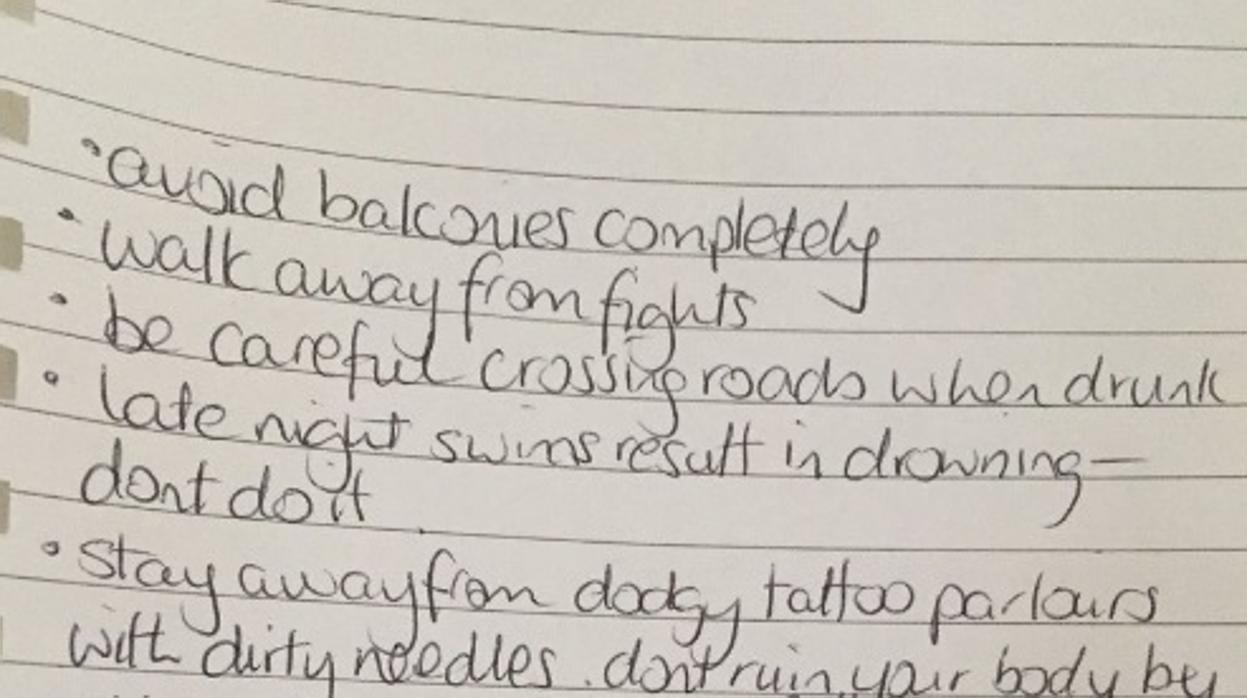 • avoid balconies completely
• walk away from fights
• be careful crossing roads when drunk
• late night swims result in drowning —
dont do it
• stay away from dodgy tattoo parlours
with dirty needles. dont ruin your body by